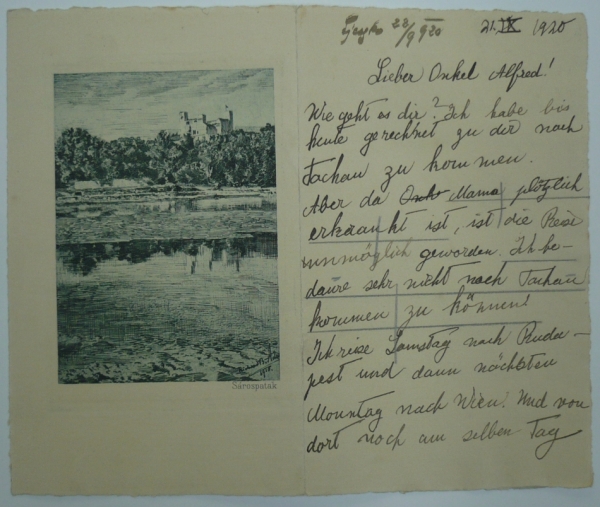 Sárospatak
22/9 920
21. IX 1920
Lieber Onkel Alfred!
Wie geht es dir? Ich habe bis
heute gerechnet zu dir nach
Tachau zu kommen.
Aber da Onk Mama plötzlich
erkrankt ist, ist die Reise
unmöglich geworden. Ich be-
daure sehr nicht nach Tachau
kommen zu können!
Ich reise Samstag nach Buda-
pest und dann nächsten
Mountag nach Wien! Und von
dort noch am selben Tag